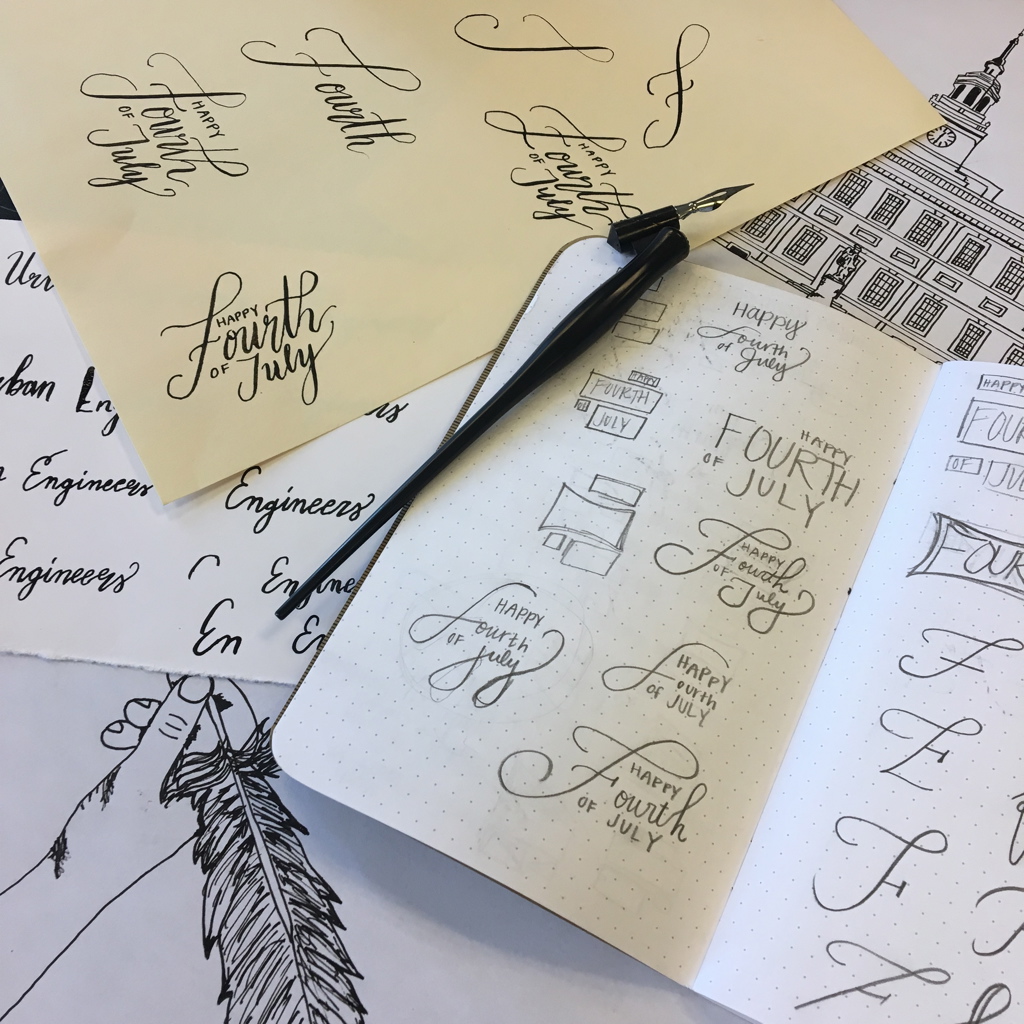 HAPPY
Fourth
OF
July
Fourth
F
F
HAPPY
Fourth
OF
July
HAPPY
Fourth
OF July
Engineers
Engineers
Engineers
En
Happy
Fourth
of July
HAPPY
FOURTH
OF
JULY
HAPPY
FOURTH
OF
JULY
HAPPY
Fourth
OF
July
HAPPY
Fourth
OF July
HAPPY
Fourth
OF JULY
HAPPY
Fourth
OF JULY
HAPPY
OF
F
F
F
F